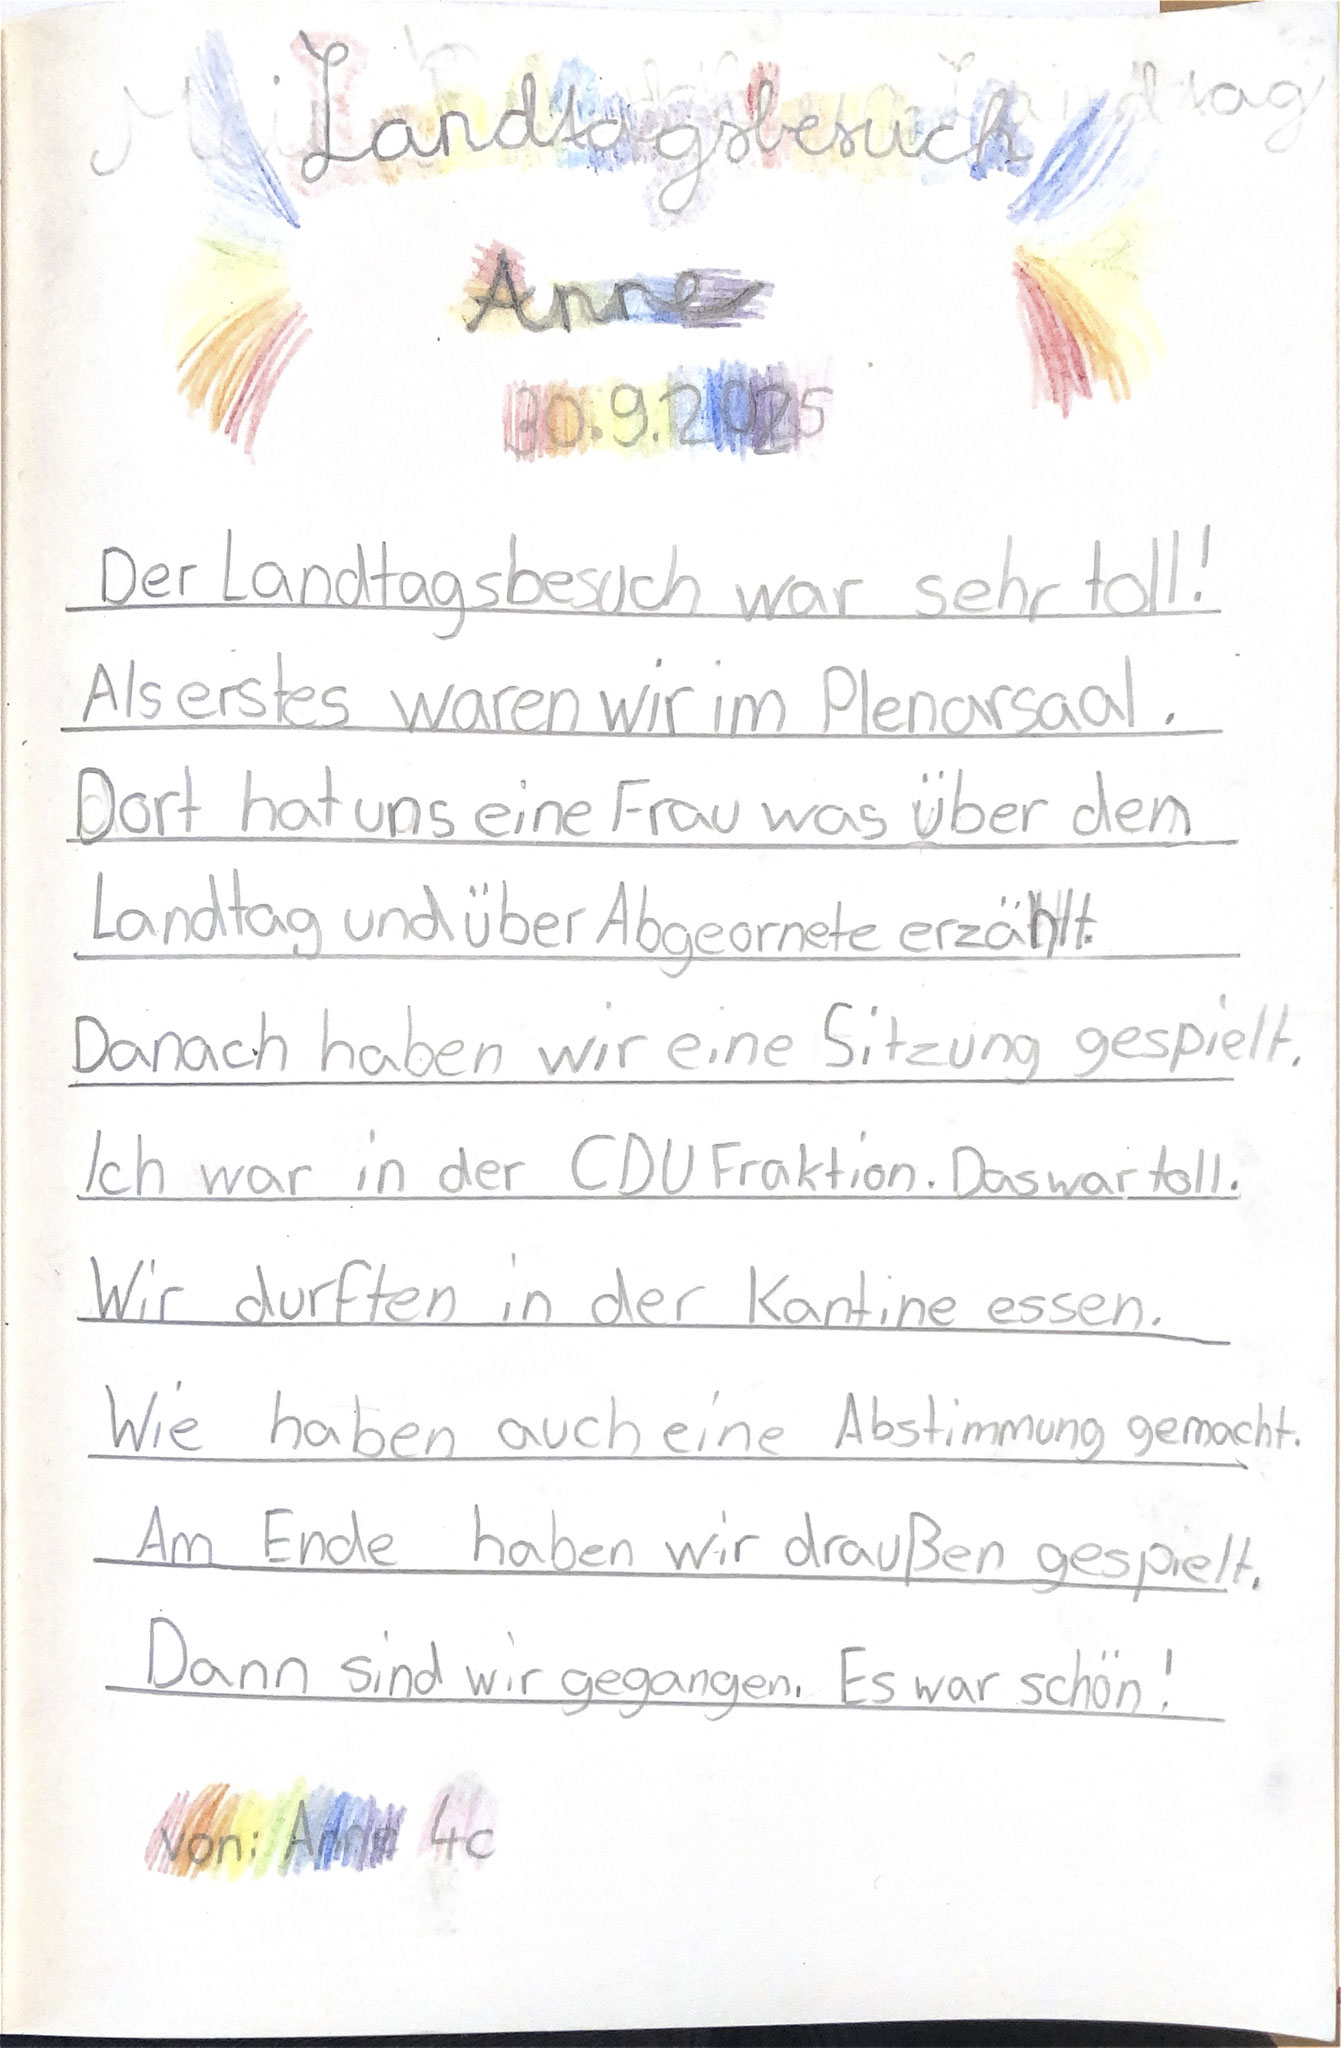 Landtagsbesuch
Anne
30.9.2025
Der Landtagsbesuch war sehr toll!
Als erstes waren wir im Plenarsaal.
Dort hat uns eine Frau was über dem
Landtag und über Abgeornete erzählt.
Danach haben wir eine Sitzung gespielt.
Ich war in der CDU Fraktion. Das war toll.
Wir durften in der Kantine essen.
Wie haben auch eine Abstimmung gemacht.
Am Ende haben wir draußen gespielt.
Dann sind wir gegangen. Es war schön!
von: Anne 4c